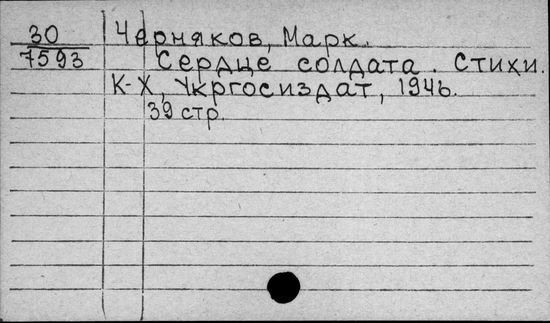 30 Черняков, Марк.
7593 Сердце солдата. Стихи.
К-Х, Укргосиздат, 1946.
39 стр.